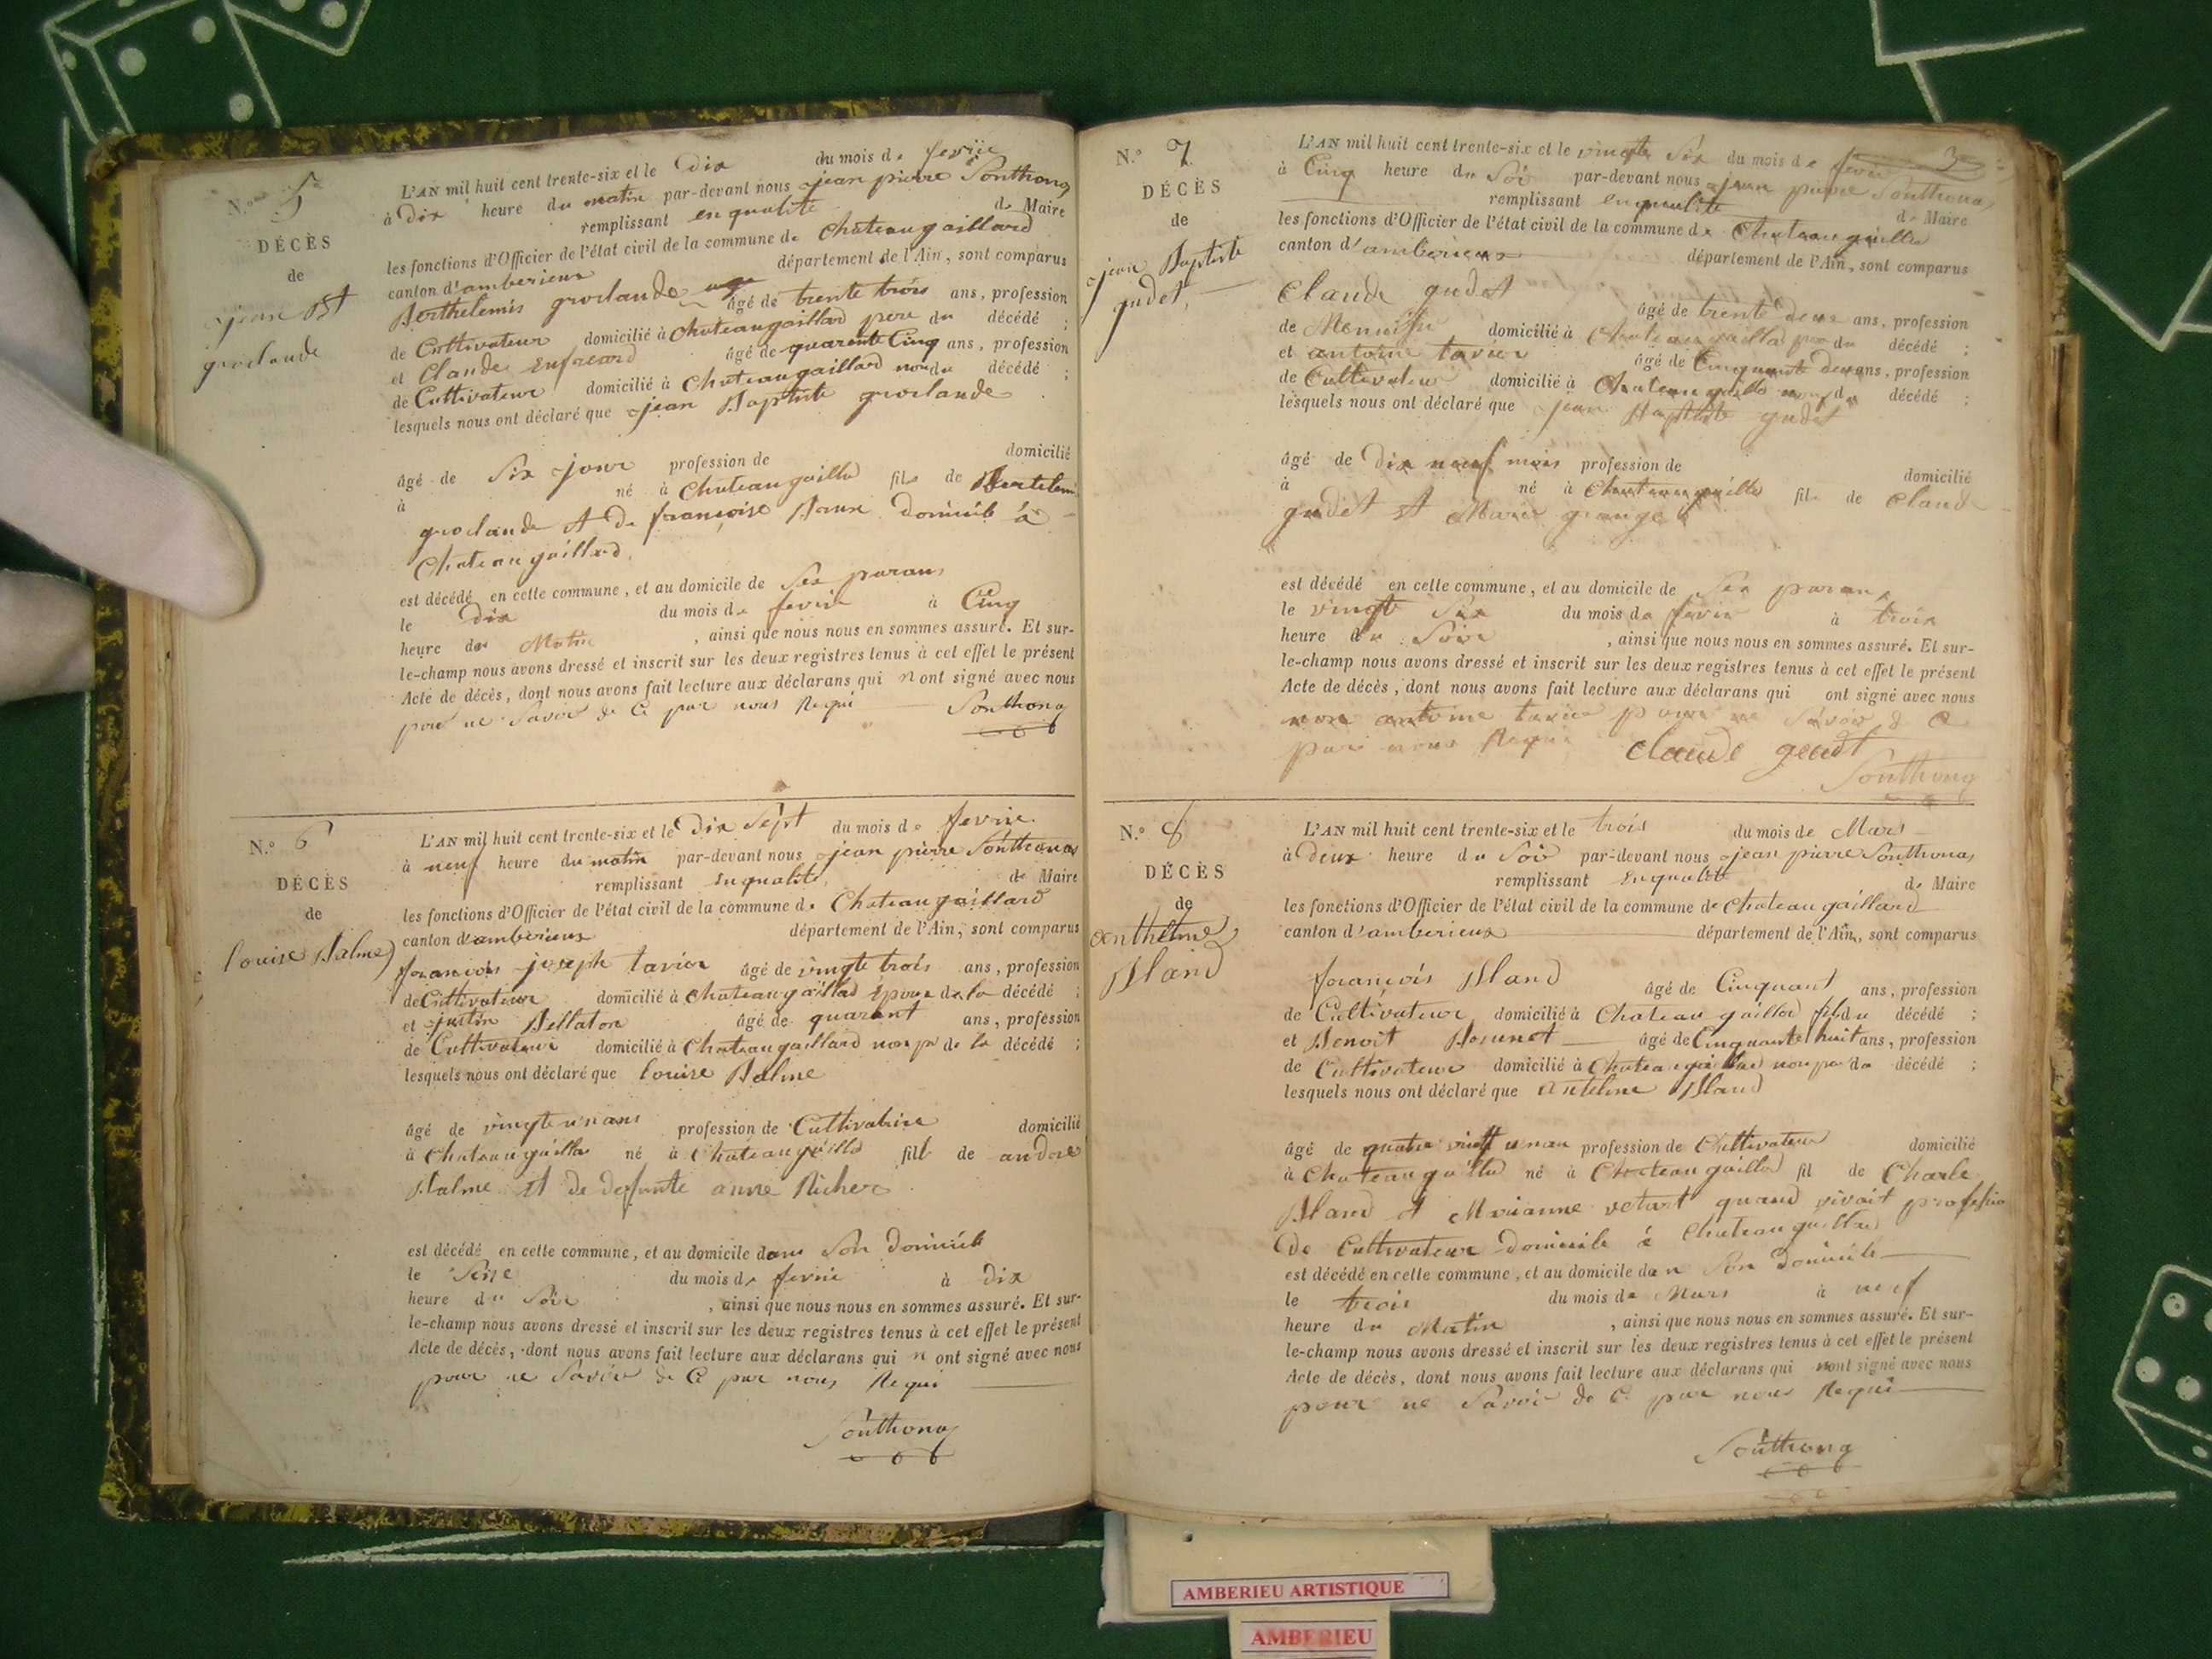 N.º 5
DÉCÈS
de
jean Bt
groclaude
L'AN mil huit cent trente-six et le dix du mois de fevrie
à dix heure du matin par-devant nous jean pierre Sonthonax
remplissant en qualité de Maire
les fonctions d'Officier de l'état civil de la commune de chateaugaillard
canton d'amberieux département de l'Ain, sont comparus
Berthelemis groclaude âgé de trente trois ans, profession
de Cultivateur domicilié à chateaugaillard pere du décédé ;
et Claude âgé de quarente Cinq ans, profession
de Cultivateur domicilié à Chateaugaillard décédé ;
lesquels nous ont déclaré que jean Baptiste groclaude
âgé de Six jour profession de domicilié
à né à Chateaugailla fils de Bertelemi
groclaude et de françoise domicile à
Chateaugaillard
est décédé en cette commune, et au domicile de Ses parans
le dix du mois de fevrie à Cinq
heure du Matin , ainsi que nous nous en sommes assuré. Et sur-
le-champ nous avons dressé et inscrit sur les deux registres tenus à cet effet le présent
Acte de décès, dont nous avons fait lecture aux déclarans qui n ont signé avec nous
pour ne Savoir de Ce par nous Requi Sonthonax
N.º 6
DÉCÈS
de
louise Balme
L'AN mil huit cent trente-six et le dix Sept du mois de fevrie
à neuf heure du matin par-devant nous jean pierre Sonthonax
remplissant en qualité de Maire
les fonctions d'Officier de l'état civil de la commune de Chateaugaillard
canton d'amberieux département de l'Ain, sont comparus
françois joseph tavier âgé de vingte trois ans, profession
de Cultivateur domicilié à chateaugaillad Epoux de la décédé ;
et justin Bellaton âgé de quarant ans, profession
de Cultivateur domicilié à Chateaugaillard non p de la décédé ;
lesquels nous ont déclaré que louise Balme
âgé de vingte un ans profession de Cultivatrice domicilié
à Chateaugailla né à Chateaugailla fille de andre
Balme et de defunte anne Richer
est décédé en cette commune, et au domicile dans Son domicile
le Seise du mois de fevrie à dix
heure du Soir , ainsi que nous nous en sommes assuré. Et sur-
le-champ nous avons dressé et inscrit sur les deux registres tenus à cet effet le présent
Acte de décès, dont nous avons fait lecture aux déclarans qui n ont signé avec nous
pour ne Savoir de Ce par nous Requi
Sonthonax
3
N.º 7
DÉCÈS
de
jean Baptiste
gudet
L'AN mil huit cent trente-six et le vingte Six du mois de fevrie
à Cinq heure du Soir par-devant nous jean pierre Sonthonax
remplissant en qualité de Maire
les fonctions d'Officier de l'état civil de la commune de Chateaugailla
canton d'amberieux département de l'Ain, sont comparus
Claude gudet âgé de trente deux ans, profession
de Menuisie domicilié à Chateaugailla du décédé ;
et antoine tavier âgé de Cinquante deux ans, profession
de Cultivateur domicilié à Chateaugailla non p du décédé ;
lesquels nous ont déclaré que jean Baptiste gudet
âgé de dix neuf mois profession de domicilié
à né à Chateaugailla fil de Claude
gudet et Marie grange
est décédé en cette commune, et au domicile de Ses parans
le vingt Six du mois de fevrie à trois
heure du Soir , ainsi que nous nous en sommes assuré. Et sur-
le-champ nous avons dressé et inscrit sur les deux registres tenus à cet effet le présent
Acte de décès, dont nous avons fait lecture aux déclarans qui ont signé avec nous
non antoine tavier pour ne Savoir de Ce
par nous Requi claude geudt
Sonthonax
N.º 8
DÉCÈS
de
anthelme
Bland
L'AN mil huit cent trente-six et le trois du mois de Mars
à deux heure du Soir par-devant nous jean pierre Sonthonax
remplissant en qualité de Maire
les fonctions d'Officier de l'état civil de la commune de Chateaugaillard
canton d'amberieux département de l'Ain, sont comparus
françois Bland âgé de Cinquant ans, profession
de Cultivateur domicilié à Chateaugaillad fils du décédé ;
et Benoit âgé de Cinquante huit ans, profession
de Cultivateur domicilié à Chateaugaillad non pa du décédé ;
lesquels nous ont déclaré que antelme Bland
âgé de quatre vingtt un an profession de Cultivateur domicilié
à Chateaugaillad né à Chateaugaillad fil de Charle
Bland et Marianne quand vivait professio
de Cultivateur Domicile à Chateaugaillad
est décédé en cette commune, et au domicile dan Son domicile
le trois du mois de Mars à neuf
heure du Matin , ainsi que nous nous en sommes assuré. Et sur-
le-champ nous avons dressé et inscrit sur les deux registres tenus à cet effet le présent
Acte de décès, dont nous avons fait lecture aux déclarans qui n ont signé avec nous
pour ne Savoir de Ce par nous Requi
Sonthonax
AMBERIEU ARTISTIQUE
AMBERIEU